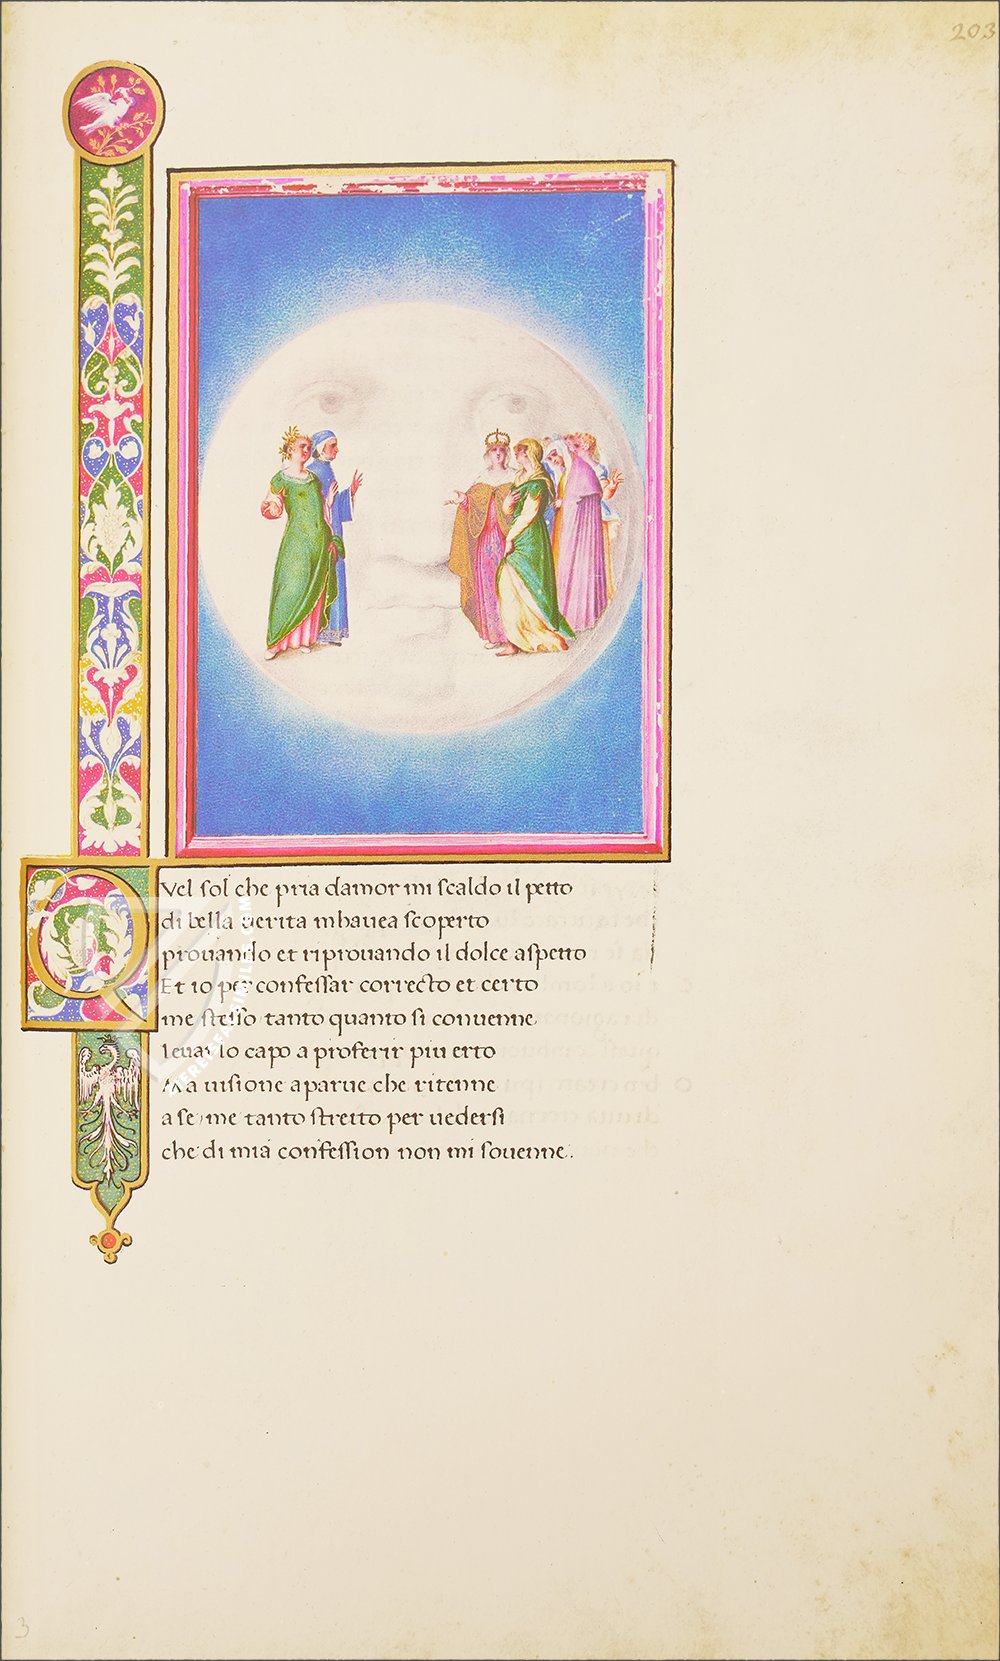 203
Quel sol che pria damor mi scaldo il petto
di bella uerita mhauea scoperto
prouando et riprouando il dolce aspetto
Et io per confessar correcto et certo
me stesso tanto quanto si conuenne
leuai lo capo a proferir piu erto
Ma uisione aparue che ritenne
a se me tanto stretto per uedersi
che di mia confession non mi souenne.
ZIEREIS FACSIMILES.COM
3